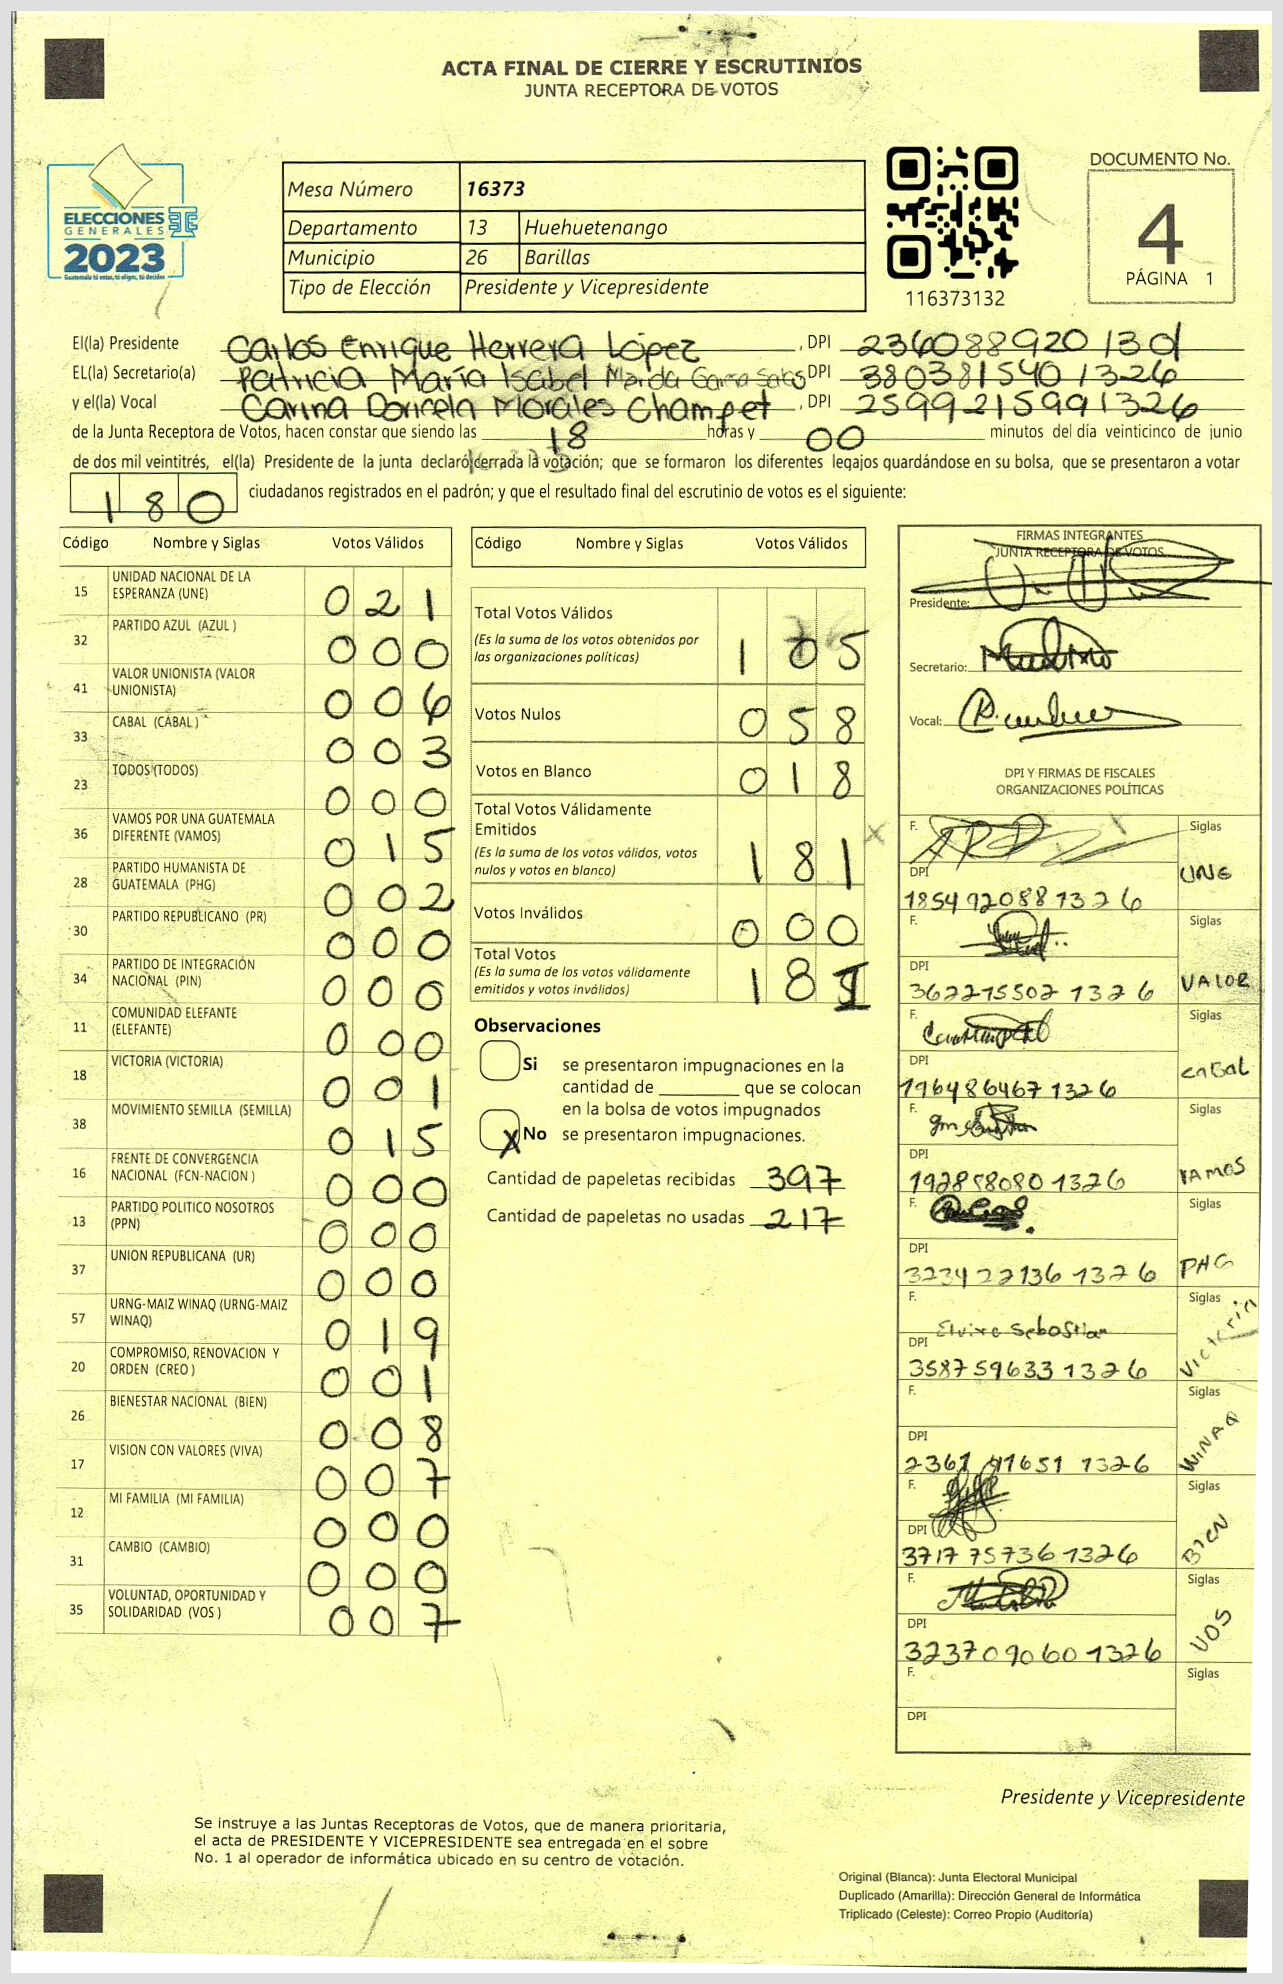 ACTA FINAL DE CIERRE Y ESCRUTINIOS
JUNTA RECEPTORA DE VOTOS
ELECCIONES
GENERALES
2023
Guatemala tú votas, tú eliges, tú decides
Mesa Número 16373
Departamento 13 Huehuetenango
Municipio 26 Barillas
Tipo de Elección Presidente y Vicepresidente
116373132
DOCUMENTO No.
4
PÁGINA 1
El(la) Presidente Carlos Enrique Herrera López, DPI 2360889201301
EL(la) Secretario(a) Patricia María Isabel DPI 3803815401326
y el(la) Vocal Carina Doricela Morales Champet, DPI 2599215991326
de la Junta Receptora de Votos, hacen constar que siendo las 18 horas y 00 minutos del día veinticinco de junio
de dos mil veintitrés, el(la) Presidente de la junta declaró cerrada la votación; que se formaron los diferentes legajos guardándose en su bolsa, que se presentaron a votar
180 ciudadanos registrados en el padrón; y que el resultado final del escrutinio de votos es el siguiente:
Código Nombre y Siglas Votos Válidos
15 UNIDAD NACIONAL DE LA ESPERANZA (UNE) 021
32 PARTIDO AZUL (AZUL ) 000
41 VALOR UNIONISTA (VALOR UNIONISTA) 006
33 CABAL (CABAL ) 003
23 TODOS (TODOS) 000
36 VAMOS POR UNA GUATEMALA DIFERENTE (VAMOS) 015
28 PARTIDO HUMANISTA DE GUATEMALA (PHG) 002
30 PARTIDO REPUBLICANO (PR) 000
34 PARTIDO DE INTEGRACIÓN NACIONAL (PIN) 000
11 COMUNIDAD ELEFANTE (ELEFANTE) 000
18 VICTORIA (VICTORIA) 001
38 MOVIMIENTO SEMILLA (SEMILLA) 015
16 FRENTE DE CONVERGENCIA NACIONAL (FCN-NACION ) 000
13 PARTIDO POLITICO NOSOTROS (PPN) 000
37 UNION REPUBLICANA (UR) 000
57 URNG-MAIZ WINAQ (URNG-MAIZ WINAQ) 019
20 COMPROMISO, RENOVACION Y ORDEN (CREO ) 001
26 BIENESTAR NACIONAL (BIEN) 008
17 VISION CON VALORES (VIVA) 007
12 MI FAMILIA (MI FAMILIA) 000
31 CAMBIO (CAMBIO) 000
35 VOLUNTAD, OPORTUNIDAD Y SOLIDARIDAD (VOS ) 007
Código Nombre y Siglas Votos Válidos
Total Votos Válidos 105
(Es la suma de los votos obtenidos por
las organizaciones políticas)
Votos Nulos 058
Votos en Blanco 018
Total Votos Válidamente
Emitidos 181
(Es la suma de los votos válidos, votos
nulos y votos en blanco)
Votos Inválidos 000
Total Votos 181
(Es la suma de los votos válidamente
emitidos y votos inválidos)
Observaciones
Si se presentaron impugnaciones en la
cantidad de ________ que se colocan
en la bolsa de votos impugnados
X No se presentaron impugnaciones.
Cantidad de papeletas recibidas 397
Cantidad de papeletas no usadas 217
FIRMAS INTEGRANTES
JUNTA RECEPTORA DE VOTOS
Presidente:
Secretario:
Vocal:
DPI Y FIRMAS DE FISCALES
ORGANIZACIONES POLÍTICAS
F. Siglas
DPI UNE
1854920881326
F. Siglas
DPI VALOR
3622155021326
F. Siglas
DPI CABAL
1964864671326
F. Siglas
DPI VAMOS
1928580801326
F. Siglas
DPI PHG
3234221361326
F. Elvira Sebastian Siglas
DPI Victoria
3587596331326
F. Siglas
DPI WINAQ
2361 1326
F. Siglas
DPI BIEN
3717757361326
F. Siglas
DPI VOS
3237090601326
F. Siglas
DPI
Presidente y Vicepresidente
Se instruye a las Juntas Receptoras de Votos, que de manera prioritaria,
el acta de PRESIDENTE Y VICEPRESIDENTE sea entregada en el sobre
No. 1 al operador de informática ubicado en su centro de votación.
Original (Blanca): Junta Electoral Municipal
Duplicado (Amarilla): Dirección General de Informática
Triplicado (Celeste): Correo Propio (Auditoría)